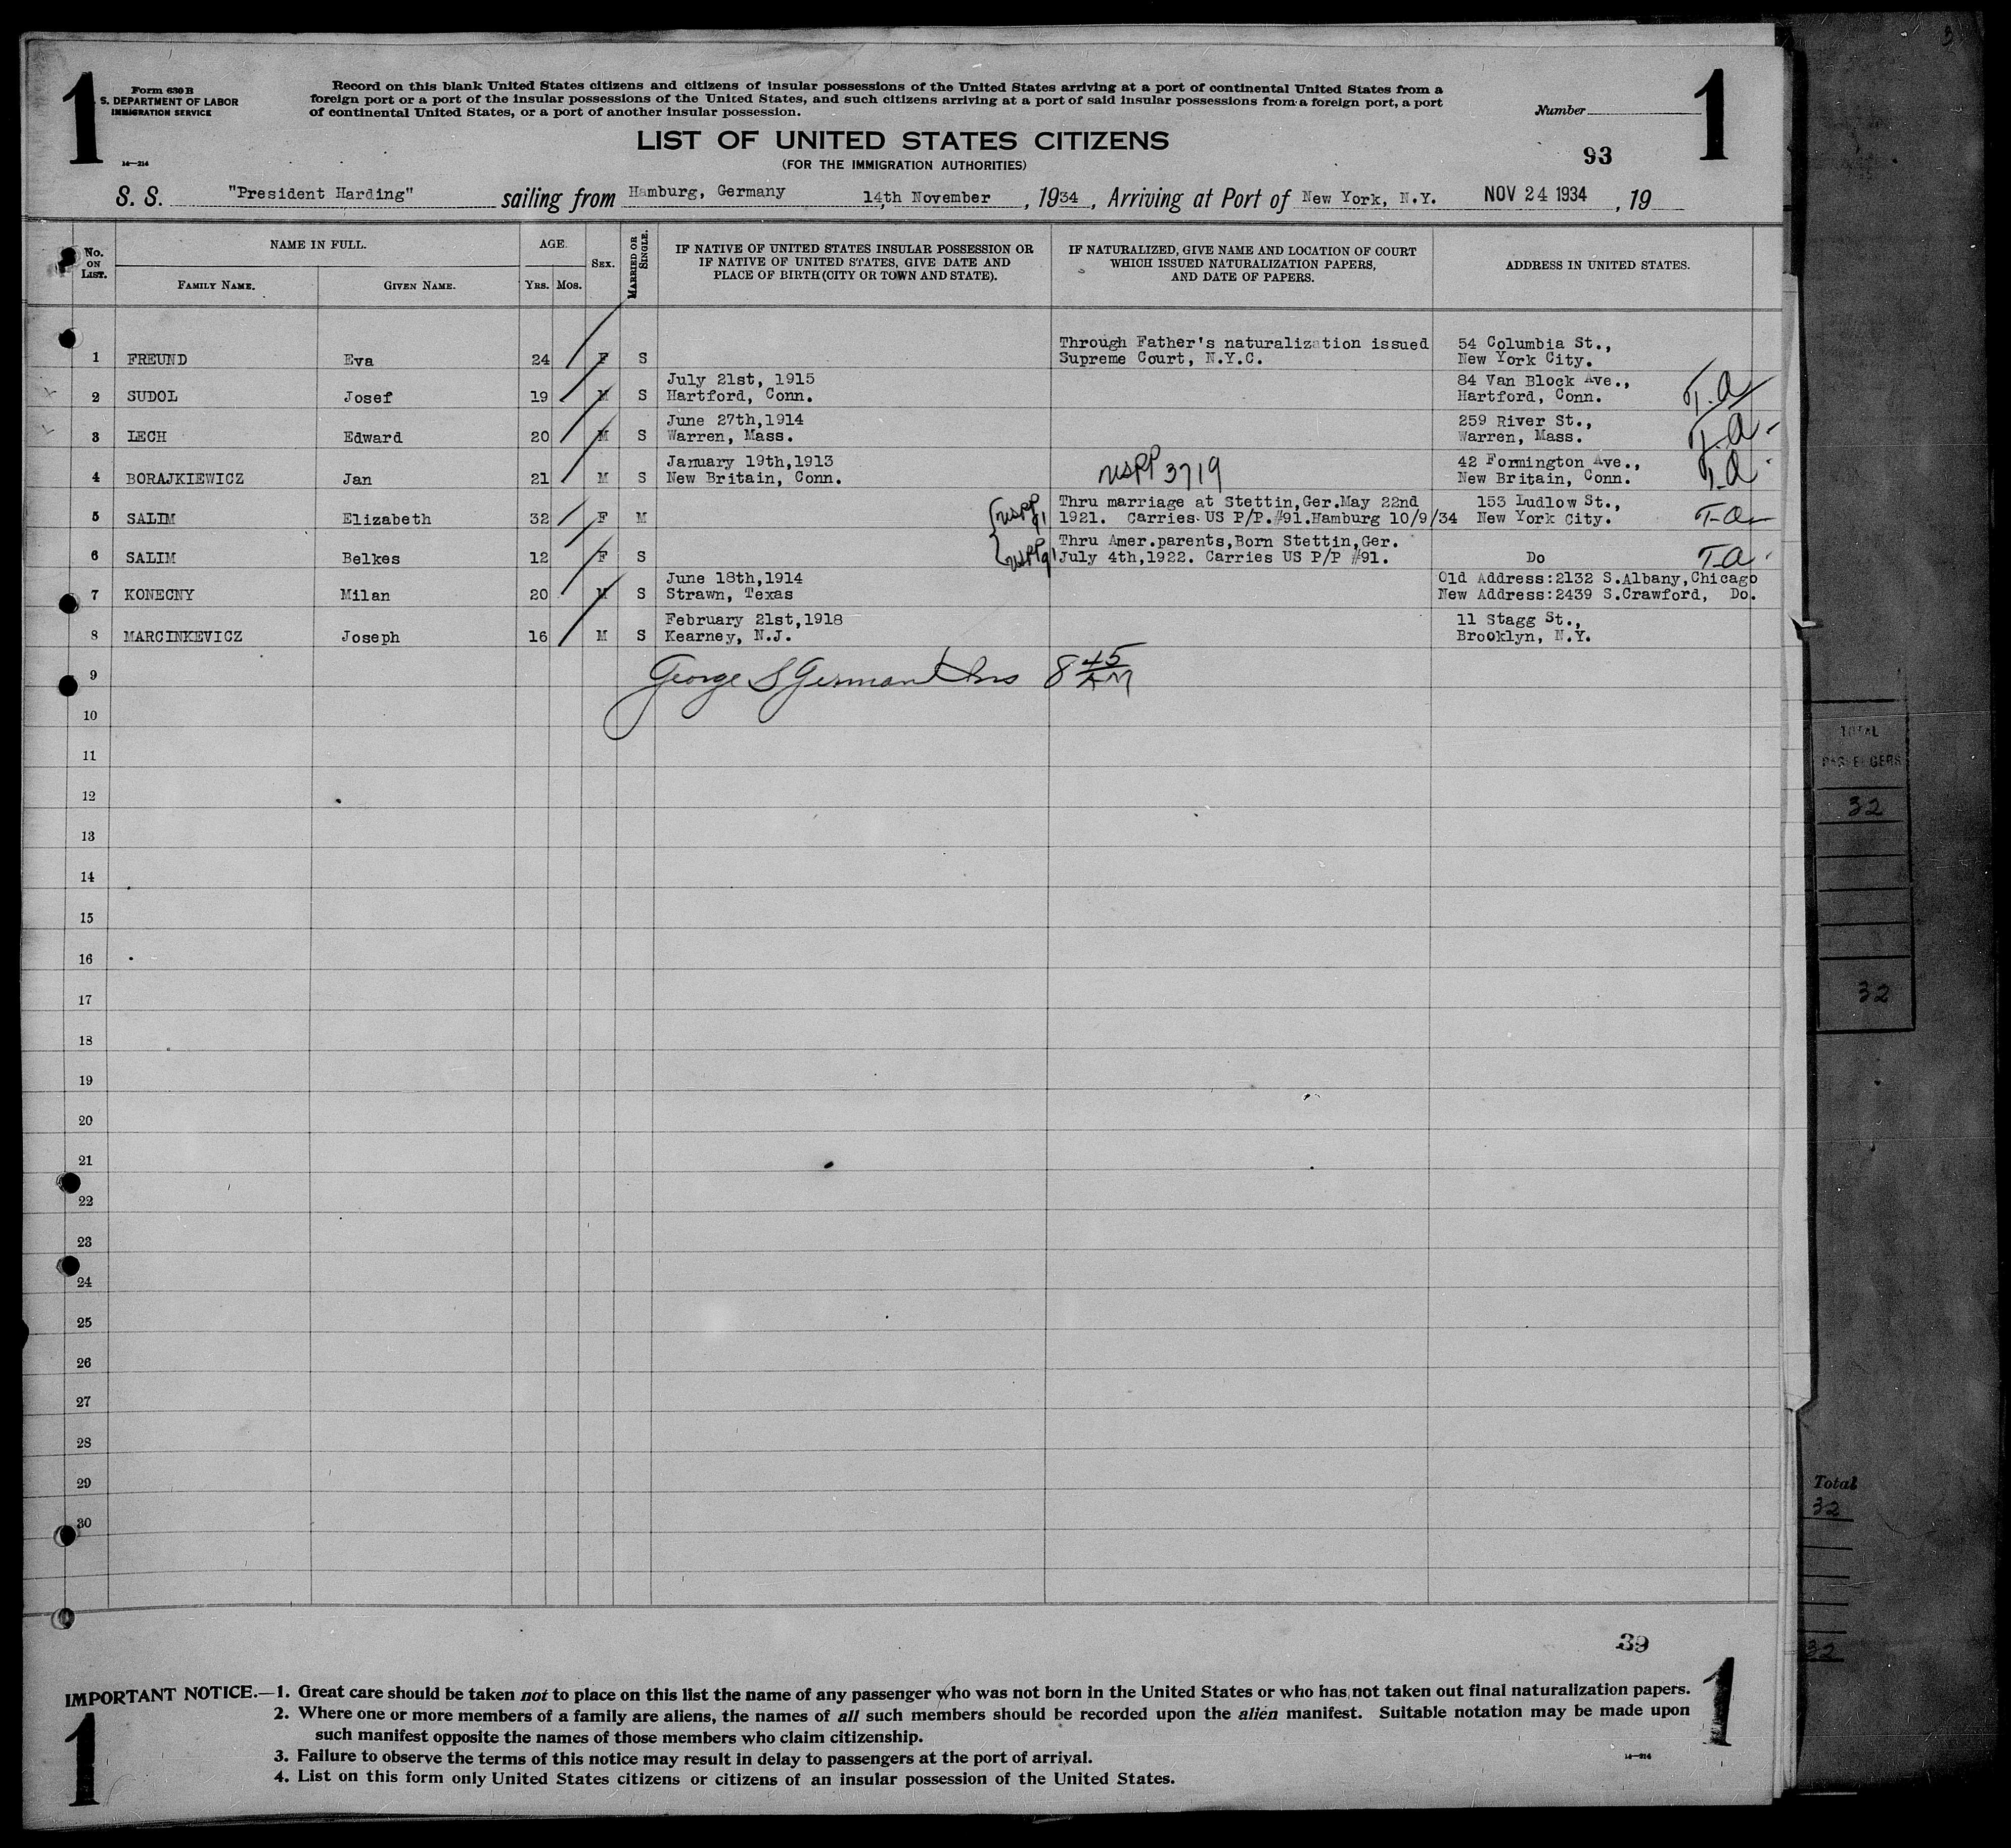 1
Form 630 B
S. DEPARTMENT OF LABOR
IMMIGRATION SERVICE
14—214
Record on this blank United States citizens and citizens of insular possessions of the United States arriving at a port of continental United States from a
foreign port or a port of the insular possessions of the United States, and such citizens arriving at a port of said insular possessions from a foreign port, a port
of continental United States, or a port of another insular possession.
Number
1
LIST OF UNITED STATES CITIZENS
(FOR THE IMMIGRATION AUTHORITIES)
93
S. S. "President Harding" sailing from Hamburg, Germany 14th November, 1934, Arriving at Port of New York, N.Y. NOV 24 1934, 19
No. ON LIST.
NAME IN FULL.
FAMILY NAME.
GIVEN NAME.
AGE.
YRS.
MOS.
SEX.
MARRIED OR SINGLE.
IF NATIVE OF UNITED STATES INSULAR POSSESSION OR
IF NATIVE OF UNITED STATES, GIVE DATE AND
PLACE OF BIRTH (CITY OR TOWN AND STATE).
IF NATURALIZED, GIVE NAME AND LOCATION OF COURT
WHICH ISSUED NATURALIZATION PAPERS,
AND DATE OF PAPERS.
ADDRESS IN UNITED STATES.
Through Father's naturalization issued 54 Columbia St.,
1 FREUND Eva 24 F S Supreme Court, N.Y.C. New York City.
July 21st, 1915 84 Van Block Ave.,
2 SUDOL Josef 19 M S Hartford, Conn. Hartford, Conn. T.A
June 27th,1914 259 River St.,
3 LECH Edward 20 M S Warren, Mass. Warren, Mass. T.A-
January 19th,1913 42 Formington Ave.,
4 BORAJKIEWICZ Jan 21 M S New Britain, Conn. USPP 3719 New Britain, Conn. T.A
Thru marriage at Stettin,Ger.May 22nd 153 Ludlow St.,
5 SALIM Elizabeth 32 F M USPP 91 1921. Carries US P/P.#91.Hamburg 10/9/34 New York City. T-A
Thru Amer.parents,Born Stettin,Ger.
6 SALIM Belkes 12 F S USPP 91 July 4th,1922. Carries US P/P #91. Do T.A
June 18th,1914 Old Address:2132 S.Albany,Chicago
7 KONECNY Milan 20 M S Strawn, Texas New Address:2439 S.Crawford, Do.
February 21st,1918 11 Stagg St.,
8 MARCINKEVICZ Joseph 16 M S Kearney, N.J. Brooklyn, N.Y.
9 George S German Ins 8 45 AM
10
11
12
13
14
15
16
17
18
19
20
21
22
23
24
25
26
27
28
29
30
39
IMPORTANT NOTICE.—1. Great care should be taken not to place on this list the name of any passenger who was not born in the United States or who has not taken out final naturalization papers.
2. Where one or more members of a family are aliens, the names of all such members should be recorded upon the alien manifest. Suitable notation may be made upon
such manifest opposite the names of those members who claim citizenship.
3. Failure to observe the terms of this notice may result in delay to passengers at the port of arrival.
4. List on this form only United States citizens or citizens of an insular possession of the United States.
14—214
1
1
TOTAL
PASSENGERS
32
32
Total
32
32